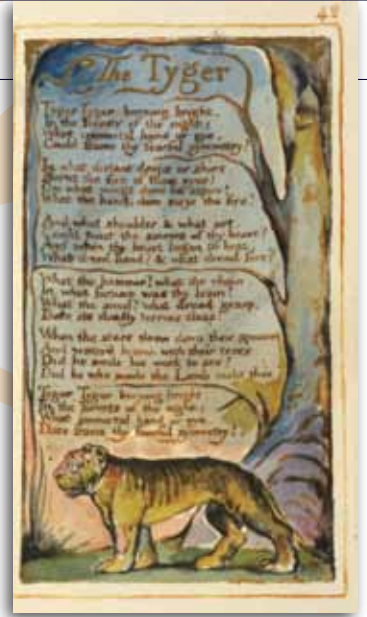 42
The Tyger
Tyger Tyger burning bright,
In the forests of the night:
What immortal hand or eye,
Could frame thy fearful symmetry?
In what distant deeps or skies
Burnt the fire of thine eyes?
On what wings dare he aspire?
What the hand, dare sieze the fire?
And what shoulder, & what art,
Could twist the sinews of thy heart?
And when thy heart began to beat,
What dread hand? & what dread feet?
What the hammer? what the chain
In what furnace was thy brain?
What the anvil? what dread grasp,
Dare its deadly terrors clasp?
When the stars threw down their spears
And water'd heaven with their tears:
Did he smile his work to see?
Did he who made the Lamb make thee?
Tyger Tyger burning bright
In the forests of the night:
What immortal hand or eye,
Dare frame thy fearful symmetry?